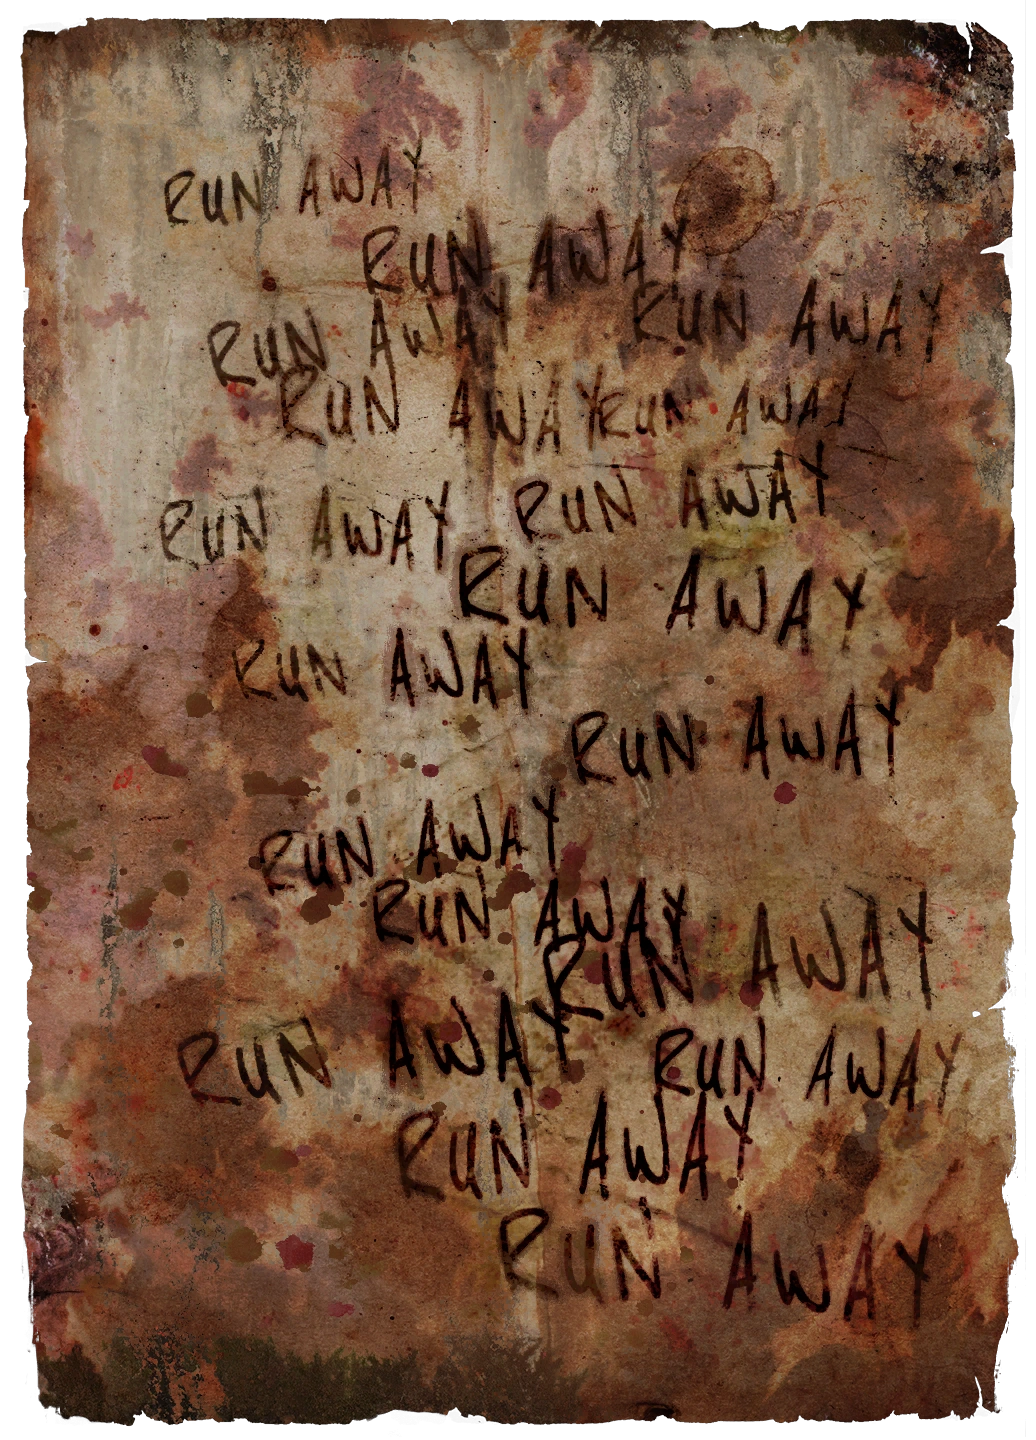 RUN AWAY
RUN AWAY
RUN AWAY RUN AWAY
RUN AWAY RUN AWAY
RUN AWAY RUN AWAY
RUN AWAY
RUN AWAY
RUN AWAY
RUN AWAY
RUN AWAY
RUN AWAY
RUN AWAY RUN AWAY
RUN AWAY
RUN AWAY